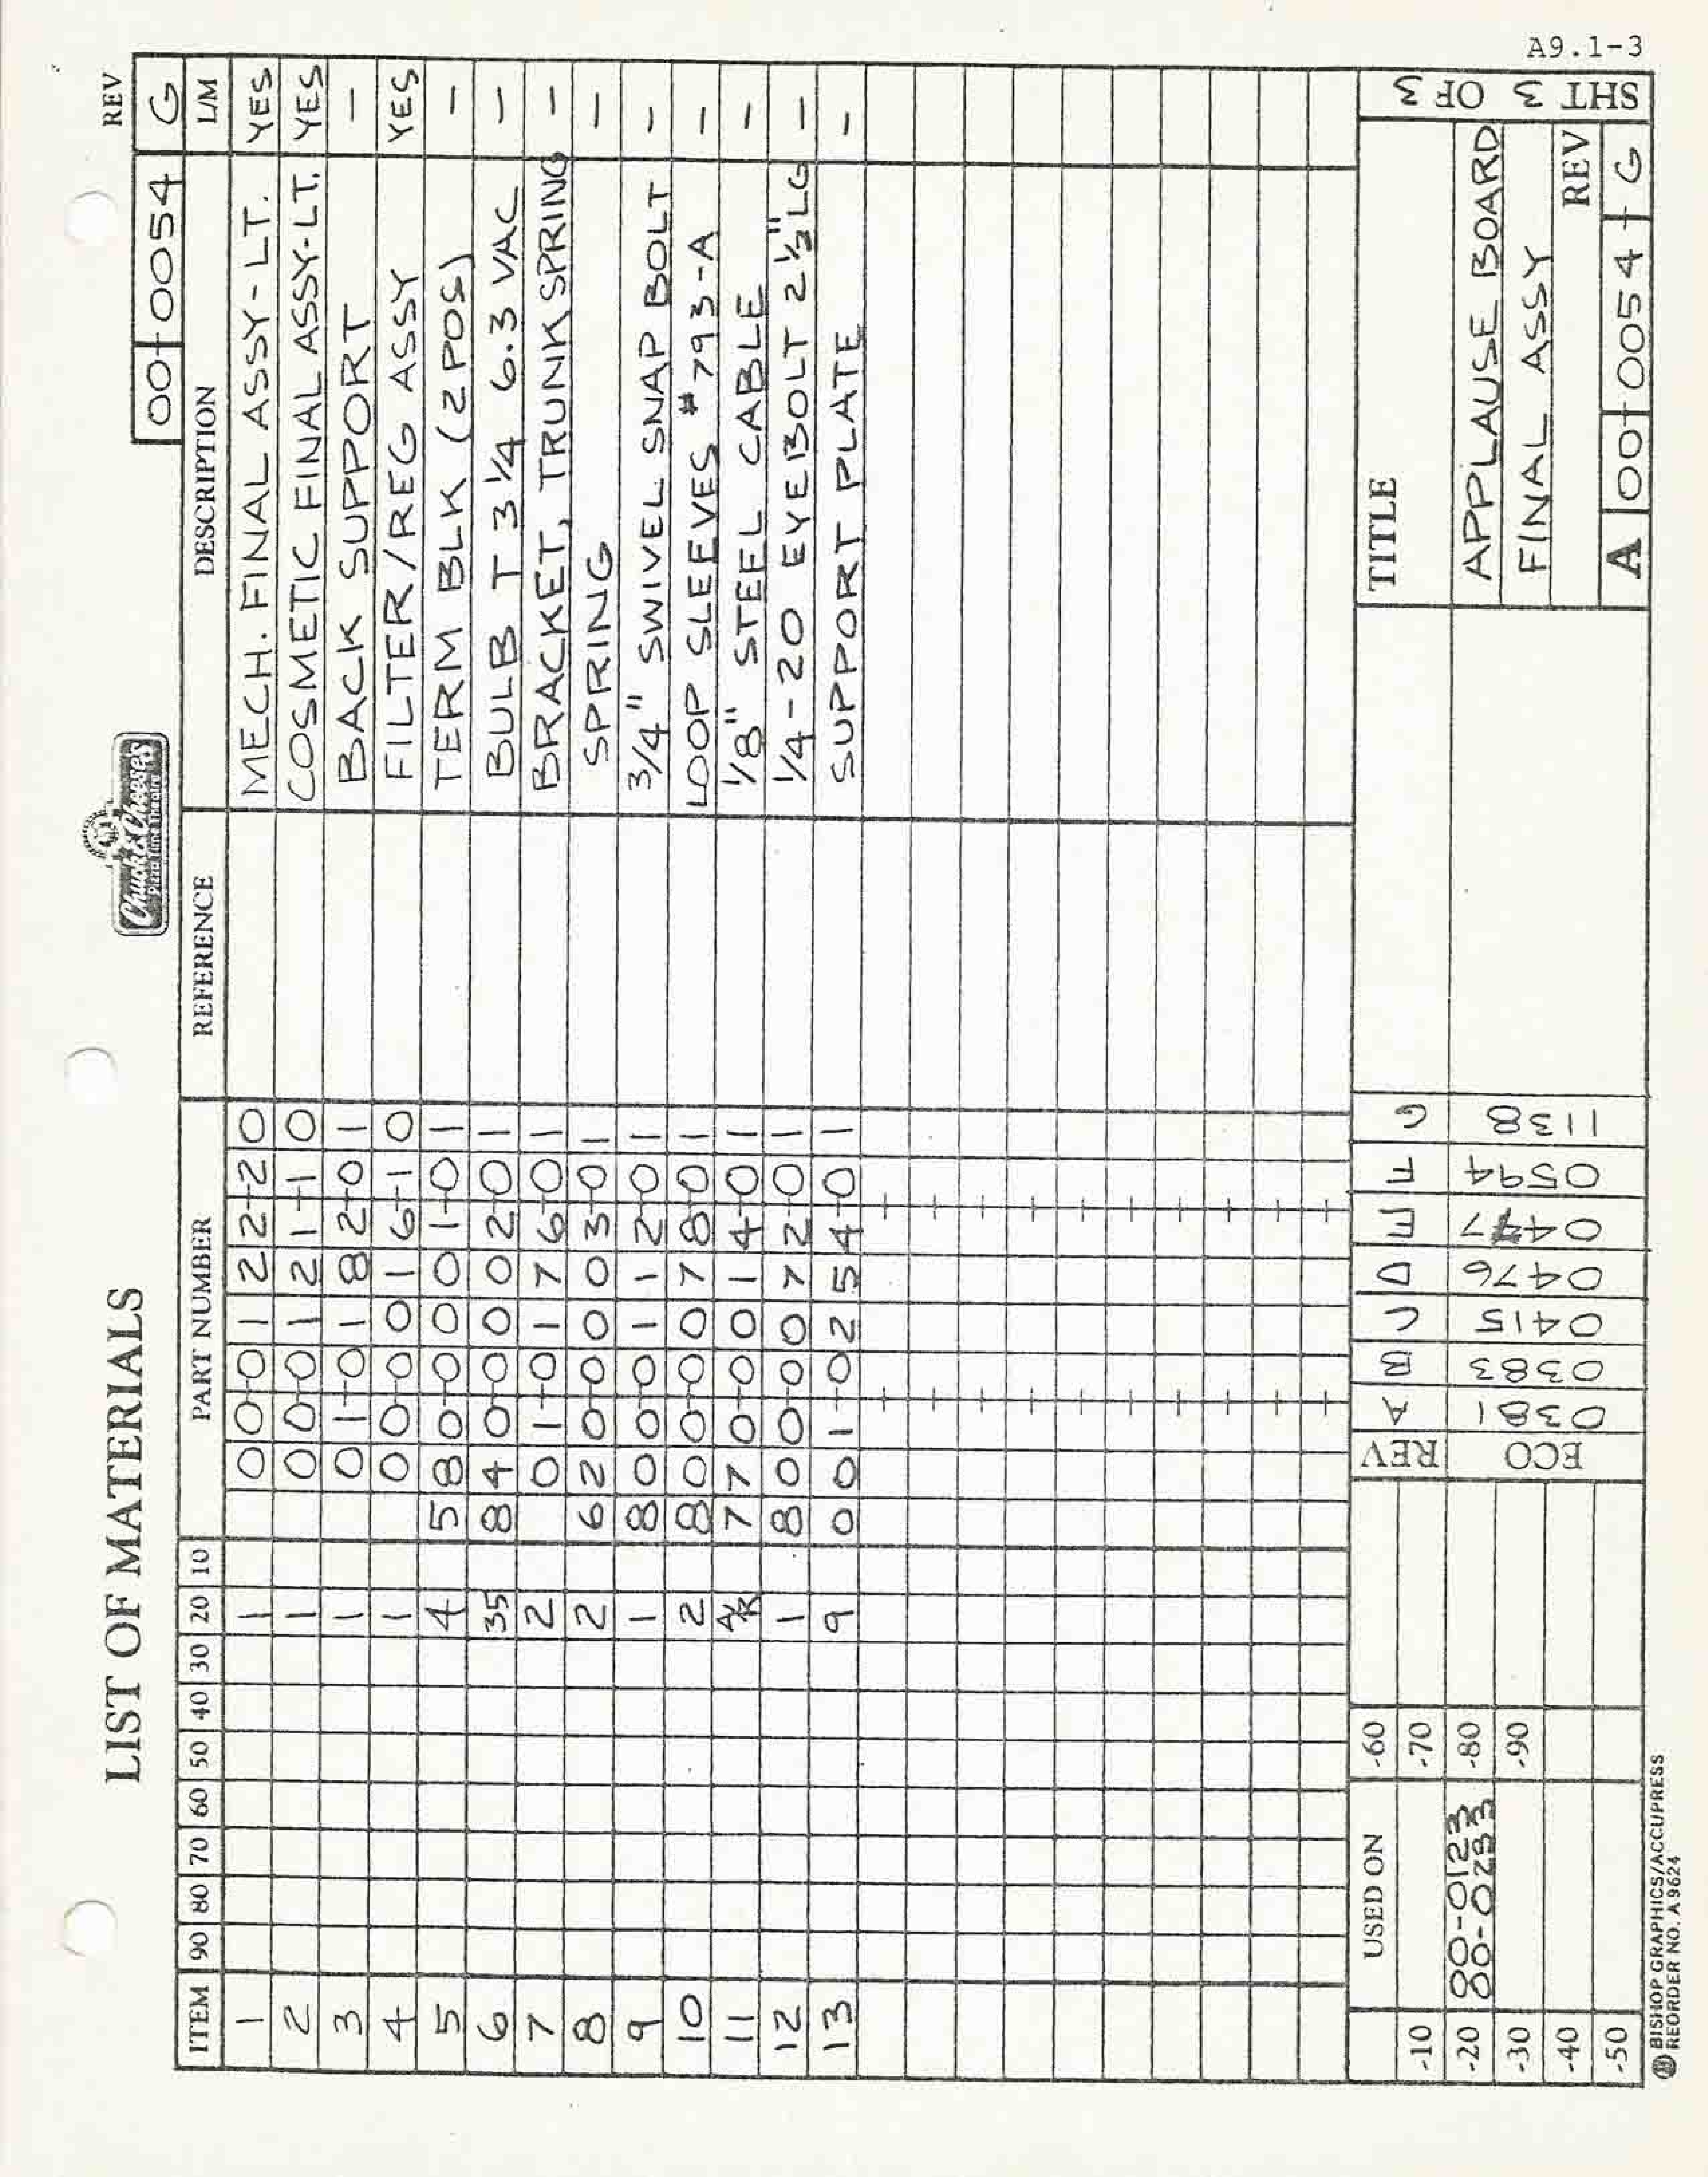 A9.1-3
LIST OF MATERIALS
Chuck E. Cheese's
Pizza Time Theatre
REV
00-0054 G
ITEM 90 80 70 60 50 40 30 20 10 PART NUMBER REFERENCE DESCRIPTION L/M
1 1 00-0122-20 MECH. FINAL ASSY-LT. YES
2 1 00-0121-10 COSMETIC FINAL ASSY-LT. YES
3 1 01-0182-01 BACK SUPPORT -
4 1 00-0016-10 FILTER/REG ASSY YES
5 4 580-0001-01 TERM BLK (2 POS) -
6 35 840-0002-01 BULB T 3 1/4 6.3 VAC -
7 2 01-0176-01 BRACKET, TRUNK SPRING -
8 2 620-0003-01 SPRING -
9 1 800-0112-01 3/4" SWIVEL SNAP BOLT -
10 2 800-0078-01 LOOP SLEEVES #793-A -
11 A/R 770-0014-01 1/8" STEEL CABLE -
12 1 800-0072-01 1/4-20 EYEBOLT 2 1/2" LG -
13 9 001-0254-01 SUPPORT PLATE -
USED ON
-10 -60
-20 00-0123 00-0233 -70
-30 -80
-40 -90
-50
REV A B C D E F G
ECO 0381 0383 0415 0476 0594 1138
TITLE
APPLAUSE BOARD
FINAL ASSY
REV
A 00-0054-G
SHT 3 OF 3
BISHOP GRAPHICS/ACCUPRESS
REORDER NO. A 9624